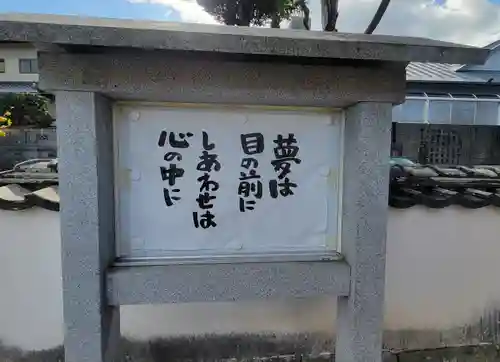 夢は
目の前に
しあわせは
心の中に